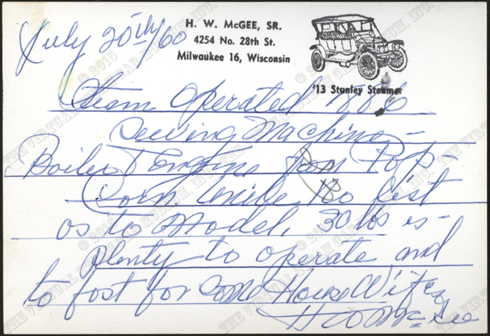 July 20th/60
H. W. McGEE, SR.
4254 No. 28th St.
Milwaukee 16, Wisconsin
'13 Stanley Steamer
Steam Operated 1886
Sewing Machine -
Boiler & Engine from Pop-
Corn 
as to Model, 30 lbs is -
plenty to operate and
to fast for some House Wifes
H W McGee